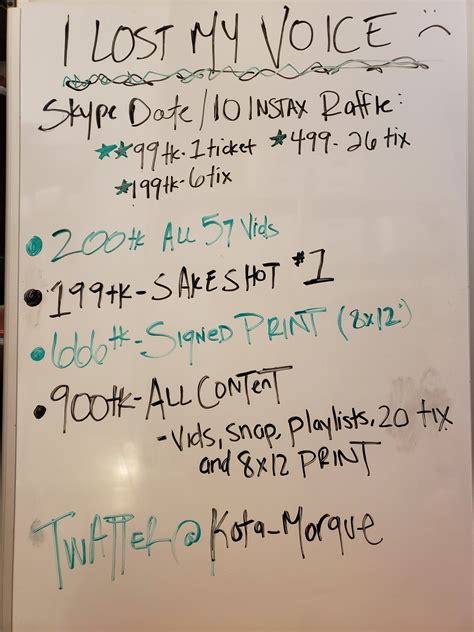 I LOST MY VOICE :(
Skype Date/10 INSTAX Raffle:
★★99tk-1ticket ★499-26 tix
★199tk-6tix
• 200tk All 57 Vids
• 199tk-SAKE SHOT #1
• 666tk-Signed PRINT (8x12)
• 900tk-All Content
-Vids, Snap, Playlists, 20 tix
and 8x12 PRINT
TWATTER@Kota_Morgue